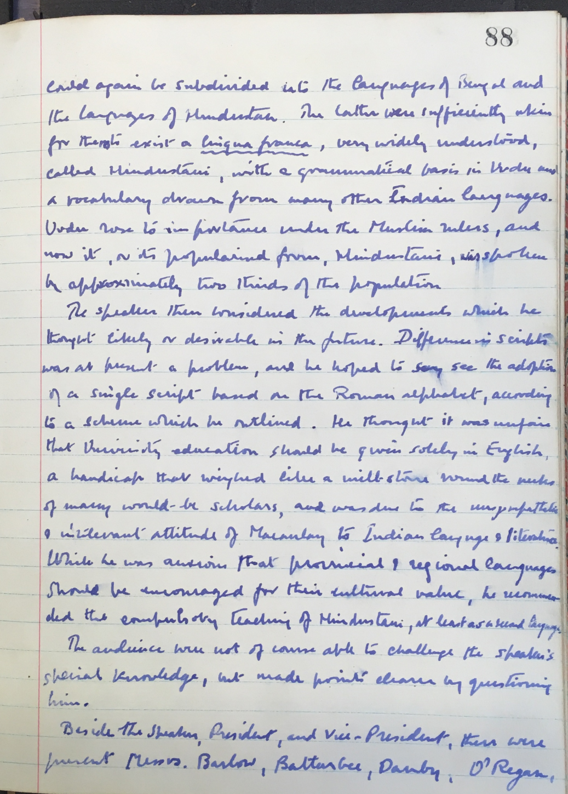 88
could again be subdivided into the languages of Bengal and
the languages of Hindustan. The latter were sufficiently akin
for there to exist a lingua franca, very widely understood,
called Hindustani, with a grammatical basis in Urdu and
a vocabulary drawn from many other Indian languages.
Urdu rose to importance under the Muslim rulers, and
now it, or its popularised form, Hindustani, was spoken
by approximately two thirds of the population
The speaker then considered the developments which he
thought likely or desirable in the future. Difference in scripts
was at present a problem, and he hoped to see the adoption
of a single script based on the Roman alphabet, according
to a scheme which he outlined. He thought it was unfair
that University education should be given solely in English,
a handicap that weighed like a mill-stone round the necks
of many would-be scholars, and was due to the unsympathetic
& irrelevant attitude of Macaulay to Indian language & literature.
While he was anxious that provincial & regional languages
should be encouraged for their cultural value, he recommen-
ded the compulsory teaching of Hindustani, at least as a second language.
The audience were not of course able to challenge the speaker's
special knowledge, but made points clearer by questioning
him.
Beside the Speaker, President, and Vice-President, there were
present Messrs. Barlow, Battarbee, Danby, O'Regan,